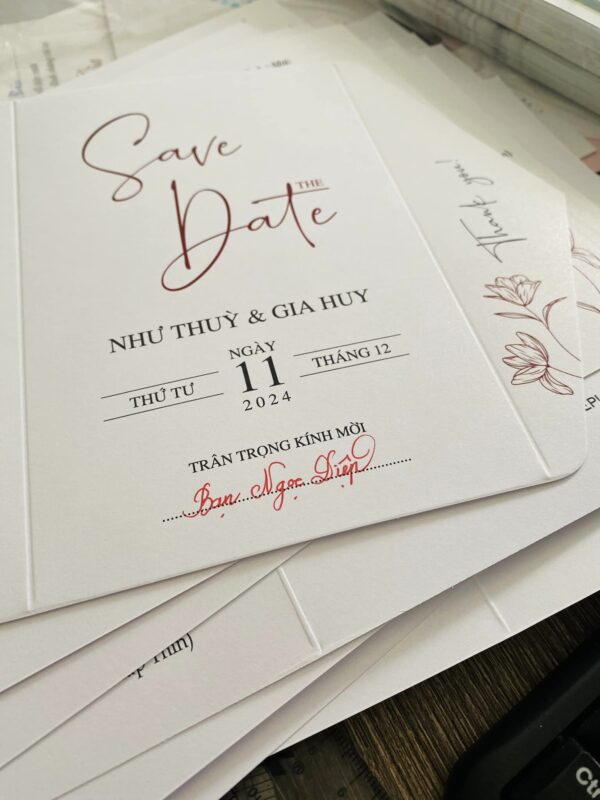 Save
THE
Date
NHƯ THUỲ & GIA HUY
NGÀY
THỨ TƯ 11 THÁNG 12
2024
TRÂN TRỌNG KÍNH MỜI
Bạn Ngọc Diệp
Thank you!
Thìn)
Ctr